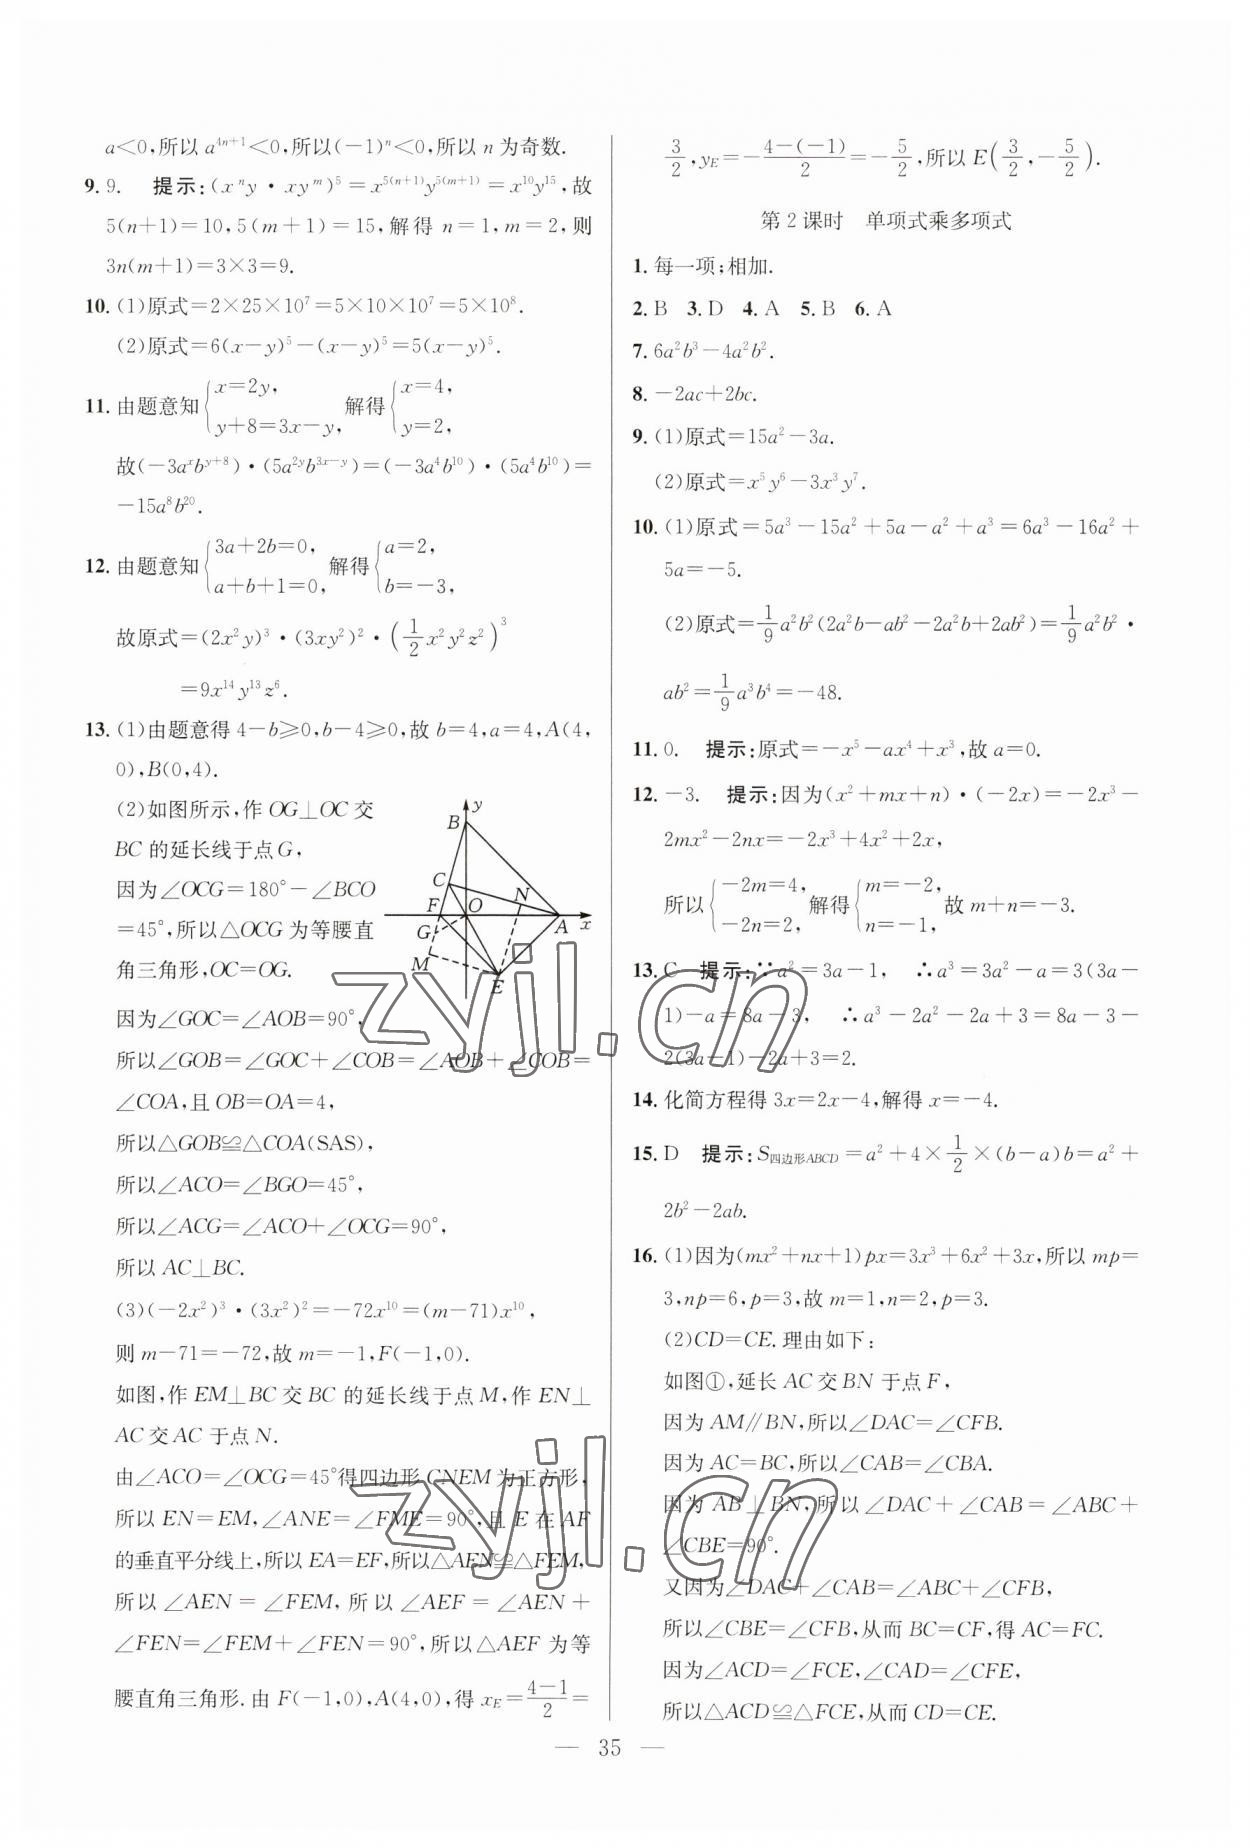 a<0,所以 a⁴ⁿ⁺¹<0,所以(-1)ⁿ<0,所以 n 为奇数.
9. 9. 提示:(xⁿy·xyᵐ)⁵=x⁵⁽ⁿ⁺¹⁾y⁵⁽ᵐ⁺¹⁾=x¹⁰y¹⁵,故
5(n+1)=10,5(m+1)=15,解得 n=1,m=2,则
3n(m+1)=3×3=9.
10. (1)原式=2×25×10⁷=5×10×10⁷=5×10⁸.
(2)原式=6(x-y)⁵-(x-y)⁵=5(x-y)⁵.
11. 由题意知{x=2y, y+8=3x-y, 解得{x=4, y=2,
故(-3aˣbʸ⁺⁸)·(5a²ʸb³ˣ⁻ʸ)=(-3a⁴b¹⁰)·(5a⁴b¹⁰)=
-15a⁸b²⁰.
12. 由题意知{3a+2b=0, a+b+1=0, 解得{a=2, b=-3,
故原式=(2x²y)³·(3xy²)²·(1/2x²y²z²)³
=9x¹⁴y¹³z⁶.
13. (1)由题意得 4-b⩾0,b-4⩾0,故 b=4,a=4,A(4,
0),B(0,4).
(2)如图所示,作 OG⊥OC 交
BC 的延长线于点 G,
因为∠OCG=180°-∠BCO
=45°,所以△OCG 为等腰直
角三角形,OC=OG.
y
B
C
N
F
O
A
x
G
M
E
因为∠GOC=∠AOB=90°,
所以∠GOB=∠GOC+∠COB=∠AOB+∠COB=
∠COA,且 OB=OA=4,
所以△GOB≌△COA(SAS),
所以∠ACO=∠BGO=45°,
所以∠ACG=∠ACO+∠OCG=90°,
所以 AC⊥BC.
(3)(-2x²)³·(3x²)²=-72x¹⁰=(m-71)x¹⁰,
则 m-71=-72,故 m=-1,F(-1,0).
如图,作 EM⊥BC 交 BC 的延长线于点 M,作 EN⊥
AC 交 AC 于点 N.
由∠ACO=∠OCG=45°得四边形 CNEM 为正方形,
所以 EN=EM,∠ANE=∠FME=90°,且 E 在 AF
的垂直平分线上,所以 EA=EF,所以△AEN≌△FEM,
所以 ∠AEN = ∠FEM, 所以 ∠AEF = ∠AEN +
∠FEN=∠FEM+∠FEN=90°,所以△AEF 为等
腰直角三角形.由 F(-1,0),A(4,0),得 x_E=(4-1)/2=
3/2,y_E=-(4-(-1))/2=-5/2,所以 E(3/2,-5/2).
第2课时 单项式乘多项式
1. 每一项;相加.
2. B 3. D 4. A 5. B 6. A
7. 6a²b³-4a²b².
8. -2ac+2bc.
9. (1)原式=15a²-3a.
(2)原式=x⁵y⁶-3x³y⁷.
10. (1)原式=5a³-15a²+5a-a²+a³=6a³-16a²+
5a=-5.
(2)原式=1/9a²b²(2a²b-ab²-2a²b+2ab²)=1/9a²b²·
ab²=1/9a³b⁴=-48.
11. 0. 提示:原式=-x⁵-ax⁴+x³,故 a=0.
12. -3. 提示:因为(x²+mx+n)·(-2x)=-2x³-
2mx²-2nx=-2x³+4x²+2x,
所以{-2m=4, -2n=2, 解得{m=-2, n=-1, 故 m+n=-3.
13. C 提示:∵a²=3a-1, ∴a³=3a²-a=3(3a-
1)-a=8a-3, ∴a³-2a²-2a+3=8a-3-
2(3a-1)-2a+3=2.
14. 化简方程得 3x=2x-4,解得 x=-4.
15. D 提示:S四边形ABCD=a²+4×1/2×(b-a)b=a²+
2b²-2ab.
16. (1)因为(mx²+nx+1)px=3x³+6x²+3x,所以 mp=
3,np=6,p=3,故 m=1,n=2,p=3.
(2)CD=CE.理由如下:
如图①,延长 AC 交 BN 于点 F,
因为 AM∥BN,所以∠DAC=∠CFB.
因为 AC=BC,所以∠CAB=∠CBA.
因为 AB⊥BN,所以∠DAC+∠CAB=∠ABC+
∠CBE=90°.
又因为∠DAC+∠CAB=∠ABC+∠CFB,
所以∠CBE=∠CFB,从而 BC=CF,得 AC=FC.
因为∠ACD=∠FCE,∠CAD=∠CFE,
所以△ACD≌△FCE,从而 CD=CE.
— 35 —
zyjl.cn
zyjl.cn